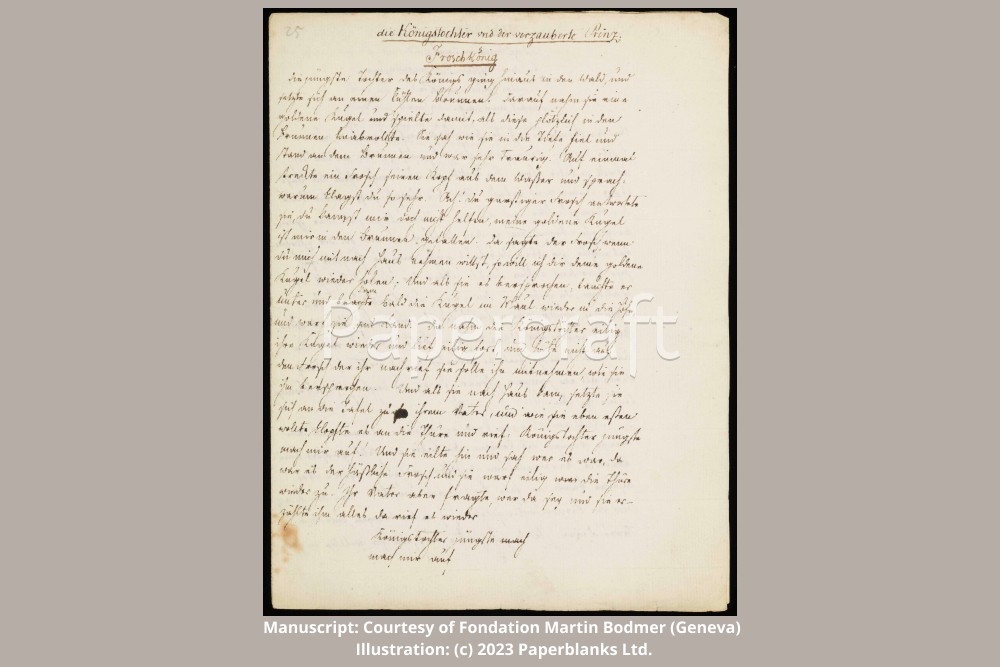 25
die Königstochter und der verzauberte Prinz.
Froschkönig
die jüngste Tochter des Königs ging hinaus in den Wald, und
setzte sich an einen kühlen Brunnen. Darauf nahm sie eine
goldene Kugel und spielte damit, als diese plötzlich in den
Brunnen hinabrollte. Sie sah wie sie in die Tiefe fiel und
stand an dem Brunnen und war sehr traurig. Auf einmal
streckte ein Frosch seinen Kopf aus dem Waßer und sprach:
warum klagst du so sehr. Ach! du garstiger Frosch antwortete
sie, du kannst mir doch nicht helfen, meine goldene Kugel
ist mir in den Brunnen gefallen. Da sagte der Frosch, wenn
du mich mit nach Haus nehmen willst, so will ich dir deine goldene
Kugel wieder holen. Und als sie es versprochen, tauchte er
unter und kam bald die Kugel im Maul wieder in die Höh
und warf sie ans Land. Da nahm die Königstochter eilig
ihre Kugel wieder und lief eilig fort und hörte nicht auf
den Frosch der ihr nachrief sie solle ihn mitnehmen, wie sie
ihm versprochen. Und als sie nach Haus kam, setzte sie
sich an die Tafel zu ihrem Vater, und wie sie eben eßen
wollte klopfte es an die Thüre und rief: Königstochter jüngste
mach mir auf! Und sie eilte hin und sah wer es war, da
war es der häßliche Frosch und sie warf eilig die Thüre
wieder zu. Ihr Vater aber fragte, wer da sey und sie er-
zählte ihm alles, da rief es wieder
Königstochter jüngste mach
mach mir auf
Papercraft
Manuscript: Courtesy of Fondation Martin Bodmer (Geneva)
Illustration: (c) 2023 Paperblanks Ltd.